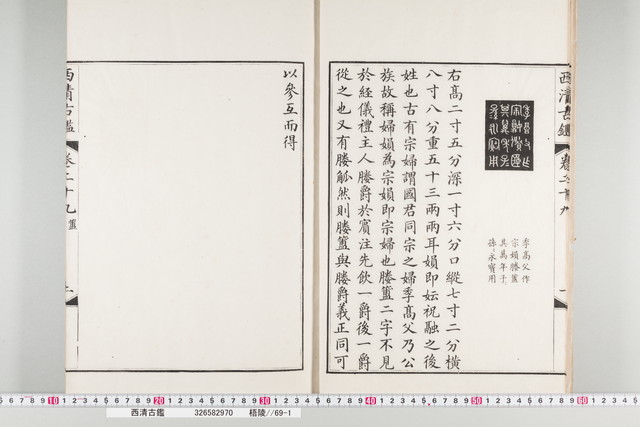 西清古鑑
卷二十九
季高父作
宗媍媵簠
其萬年子
孫〻永寶用
右高二寸五分深一寸六分口縱七寸二分橫
八寸八分重五十三兩兩耳媍即妘祝融之後
姓也古有宗婦謂國君同宗之婦季髙父乃公
族故稱婦媍為宗媍即宗婦也媵簠二字不見
於經儀禮主人媵爵於賓注先飲一爵後一爵
從之也又有媵觚然則媵簠與媵爵義正同可
以參互而得
西清古鑑
卷二十九
簠
西清古鑑 326582970 梧陵//69-1